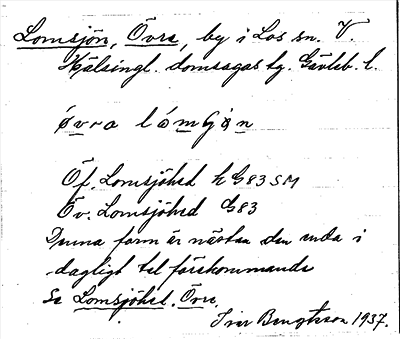 Lomsjön, Övre, by i Los sn. V.
Hälsingl. domsagas tg. Gävleb. l.
övra lómGòn
Öf. Lomsjöhed k G83 SM
Öv. Lomsjöhed G83
Denna form är nästan den enda i
dagligt tal förekommande
Se Lomsjöhed, Övre.
Ivar Bengtsson 1937.